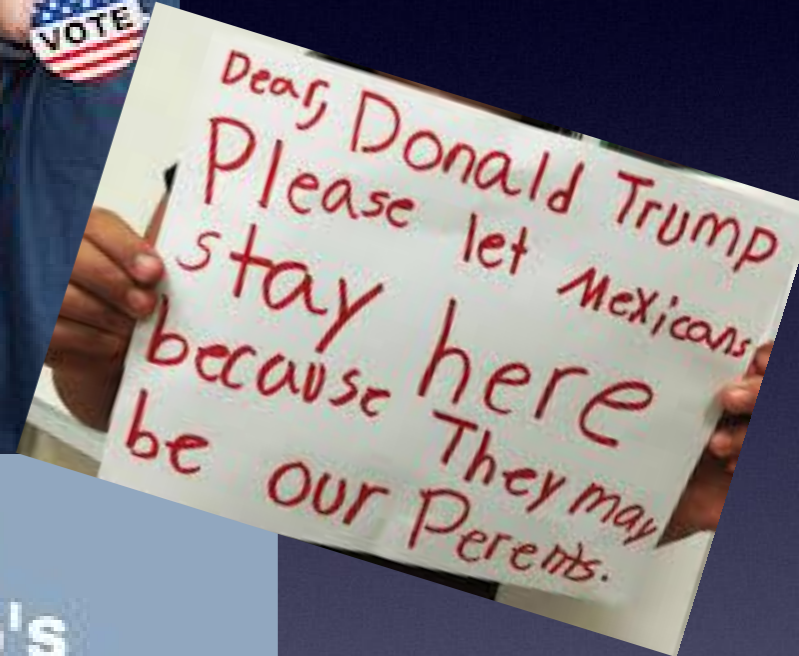 VOTE
Dear, Donald Trump
Please let Mexicans
stay here
because They may
be our Perents.
's